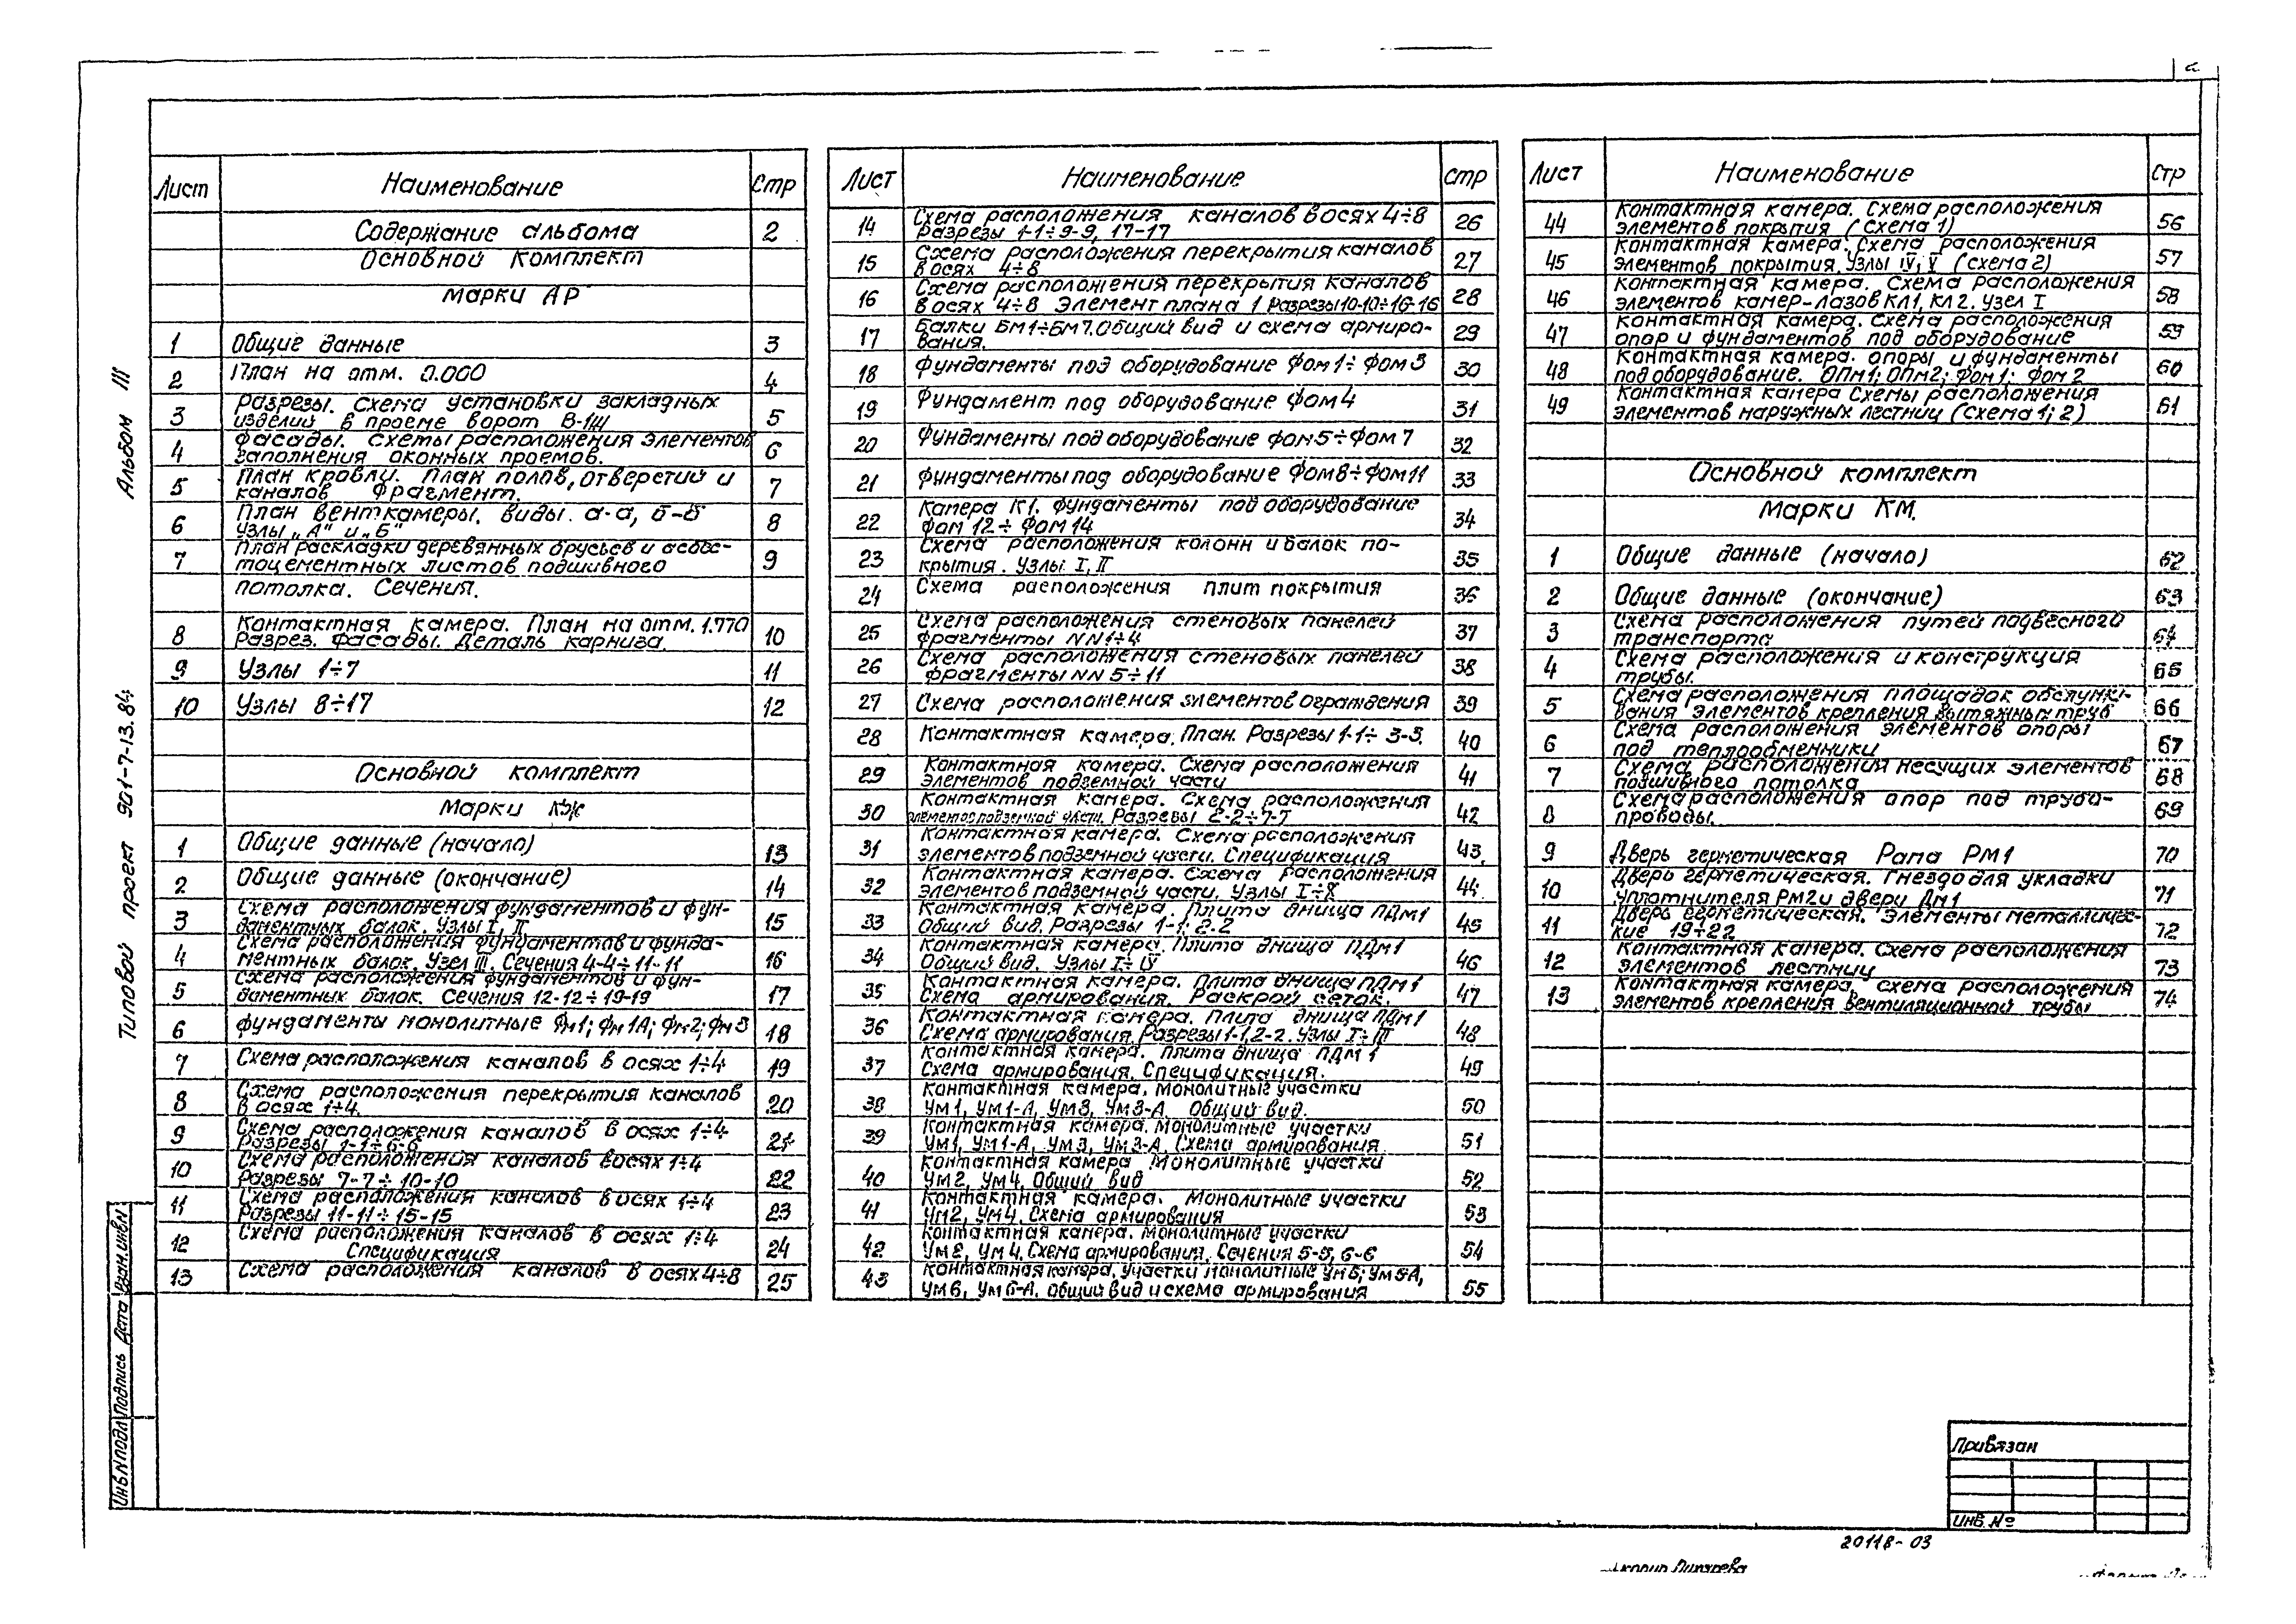 Альбом III
Типовой проект 901-7-13.84
Лист Наименование Стр
Содержание альбома 2
Основной комплект
марки АР
1 Общие данные 3
2 План на отм. 0.000 4
3 Разрезы. Схема установки закладных
изделий в проеме ворот В-1 5
4 Фасады. Схемы расположения элементов
заполнения оконных проемов. 6
5 План кровли. План полов, отверстий и
каналов Фрагмент. 7
6 План венткамеры. Виды. а-а, б-б
Узлы „А" и „Б" 8
7 План раскладки деревянных брусьев и асбес-
тоцементных листов подшивного 9
потолка. Сечения.
8 Контактная камера. План на отм. 1.770
Разрез. Фасады. Деталь карниза. 10
9 Узлы 1÷7 11
10 Узлы 8÷17 12
Основной комплект
Марки КЖ
1 Общие данные (начало) 13
2 Общие данные (окончание) 14
3 Схема расположения фундаментов и фун-
даментных балок. Узлы I, II 15
4 Схема расположения фундаментов и фунда-
ментных балок. Узел III. Сечения 4-4÷11-11 16
5 Схема расположения фундаментов и фун-
даментных балок. Сечения 12-12÷19-19 17
6 Фундаменты монолитные Фм1; Фм1А; Фм2; Фм3 18
7 Схема расположения каналов в осях 1÷4 19
8 Схема расположения перекрытия каналов
в осях 1÷4. 20
9 Схема расположения каналов в осях 1÷4
Разрезы 1-1÷6-6 21
10 Схема расположения каналов в осях 1÷4
Разрезы 7-7÷10-10 22
11 Схема расположения каналов в осях 1÷4
Разрезы 11-11÷15-15 23
12 Схема расположения каналов в осях 1÷4
Спецификация 24
13 Схема расположения каналов в осях 4÷8 25
Лист Наименование стр
14 Схема расположения каналов в осях 4÷8
Разрезы 1-1÷9-9, 17-17 26
15 Схема расположения перекрытия каналов
в осях 4÷8 27
16 Схема расположения перекрытия каналов
в осях 4÷8 Элемент плана 1 Разрезы 10-10÷16-16 28
17 Балки Бм1÷Бм7. Общий вид и схема армиро-
вания. 29
18 Фундаменты под оборудование Фом1÷Фом3 30
19 Фундамент под оборудование Фом4 31
20 Фундаменты под оборудование Фом5÷Фом7 32
21 Фундаменты под оборудование Фом8÷Фом11 33
22 Камера К1. Фундаменты под оборудование
Фом12÷Фом14 34
23 Схема расположения колонн и балок по-
крытия. Узлы I, II 35
24 Схема расположения плит покрытия 36
25 Схема расположения стеновых панелей
Фрагменты NN1÷4 37
26 Схема расположения стеновых панелей
Фрагменты NN 5÷11 38
27 Схема расположения элементов ограждения 39
28 Контактная камера. План. Разрезы 1-1÷3-3. 40
29 Контактная камера. Схема расположения
элементов подземной части 41
30 Контактная камера. Схема расположения
элементов подземной части. Разрезы 2-2÷7-7 42
31 Контактная камера. Схема расположения
элементов подземной части. Спецификация 43
32 Контактная камера. Схема расположения
элементов подземной части. Узлы I÷X 44
33 Контактная камера. Плита днища ПДм1
Общий вид. Разрезы 1-1; 2-2 45
34 Контактная камера. Плита днища ПДм1
Общий вид. Узлы I÷IV 46
35 Контактная камера. Плита днища ПДм1
Схема армирования. Раскрой сеток. 47
36 Контактная камера. Плита днища ПДм1
Схема армирования. Разрезы 1-1, 2-2. Узлы I÷III 48
37 Контактная камера. Плита днища ПДм1
Схема армирования. Спецификация. 49
38 Контактная камера. Монолитные участки
Ум1, Ум1-А, Ум3, Ум3-А. Общий вид. 50
39 Контактная камера. Монолитные участки
Ум1, Ум1-А, Ум3, Ум3-А. Схема армирования 51
40 Контактная камера Монолитные участки
Ум2, Ум4. Общий вид 52
41 Контактная камера. Монолитные участки
Ум2, Ум4. Схема армирования 53
42 Контактная камера. Монолитные участки
Ум2, Ум4. Схема армирования. Сечения 5-5, 6-6 54
43 Контактная камера. Участки монолитные Ум5; Ум5-А,
Ум6, Ум6-А. Общий вид и схема армирования 55
Лист Наименование Стр
44 Контактная камера. Схема расположения
элементов покрытия (схема 1) 56
45 Контактная камера. Схема расположения
элементов покрытия. Узлы IV, V (схема 2) 57
46 Контактная камера. Схема расположения
элементов камер-лазов КЛ1, КЛ2. Узел I 58
47 Контактная камера. Схема расположения
опор и фундаментов под оборудование 59
48 Контактная камера. Опоры и фундаменты
под оборудование. ОПм1; ОПм2; Фом1; Фом2 60
49 Контактная камера Схемы расположения
элементов наружных лестниц (схема 1; 2) 61
Основной комплект
Марки КМ.
1 Общие данные (начало) 62
2 Общие данные (окончание) 63
3 Схема расположения путей подвесного
транспорта 64
4 Схема расположения и конструкция
трубы. 65
5 Схема расположения площадок обслужи-
вания элементов крепления вытяжных труб 66
6 Схема расположения элементов опоры
под теплообменники 67
7 Схема расположения несущих элементов
подшивного потолка 68
8 Схема расположения опор под трубо-
проводы. 69
9 Дверь герметическая Рама РМ1 70
10 Дверь герметическая. Гнездо для укладки
уплотнителя РМ2 и двери Дм1 71
11 Дверь герметическая. Элементы металличес-
кие 19÷22 72
12 Контактная камера. Схема расположения
элементов лестниц 73
13 Контактная камера, схема расположения
элементов крепления вентиляционной трубы 74
Инв.N подл Подпись Дата Взам.инв.N
Привязан
Инв. №
20118-03